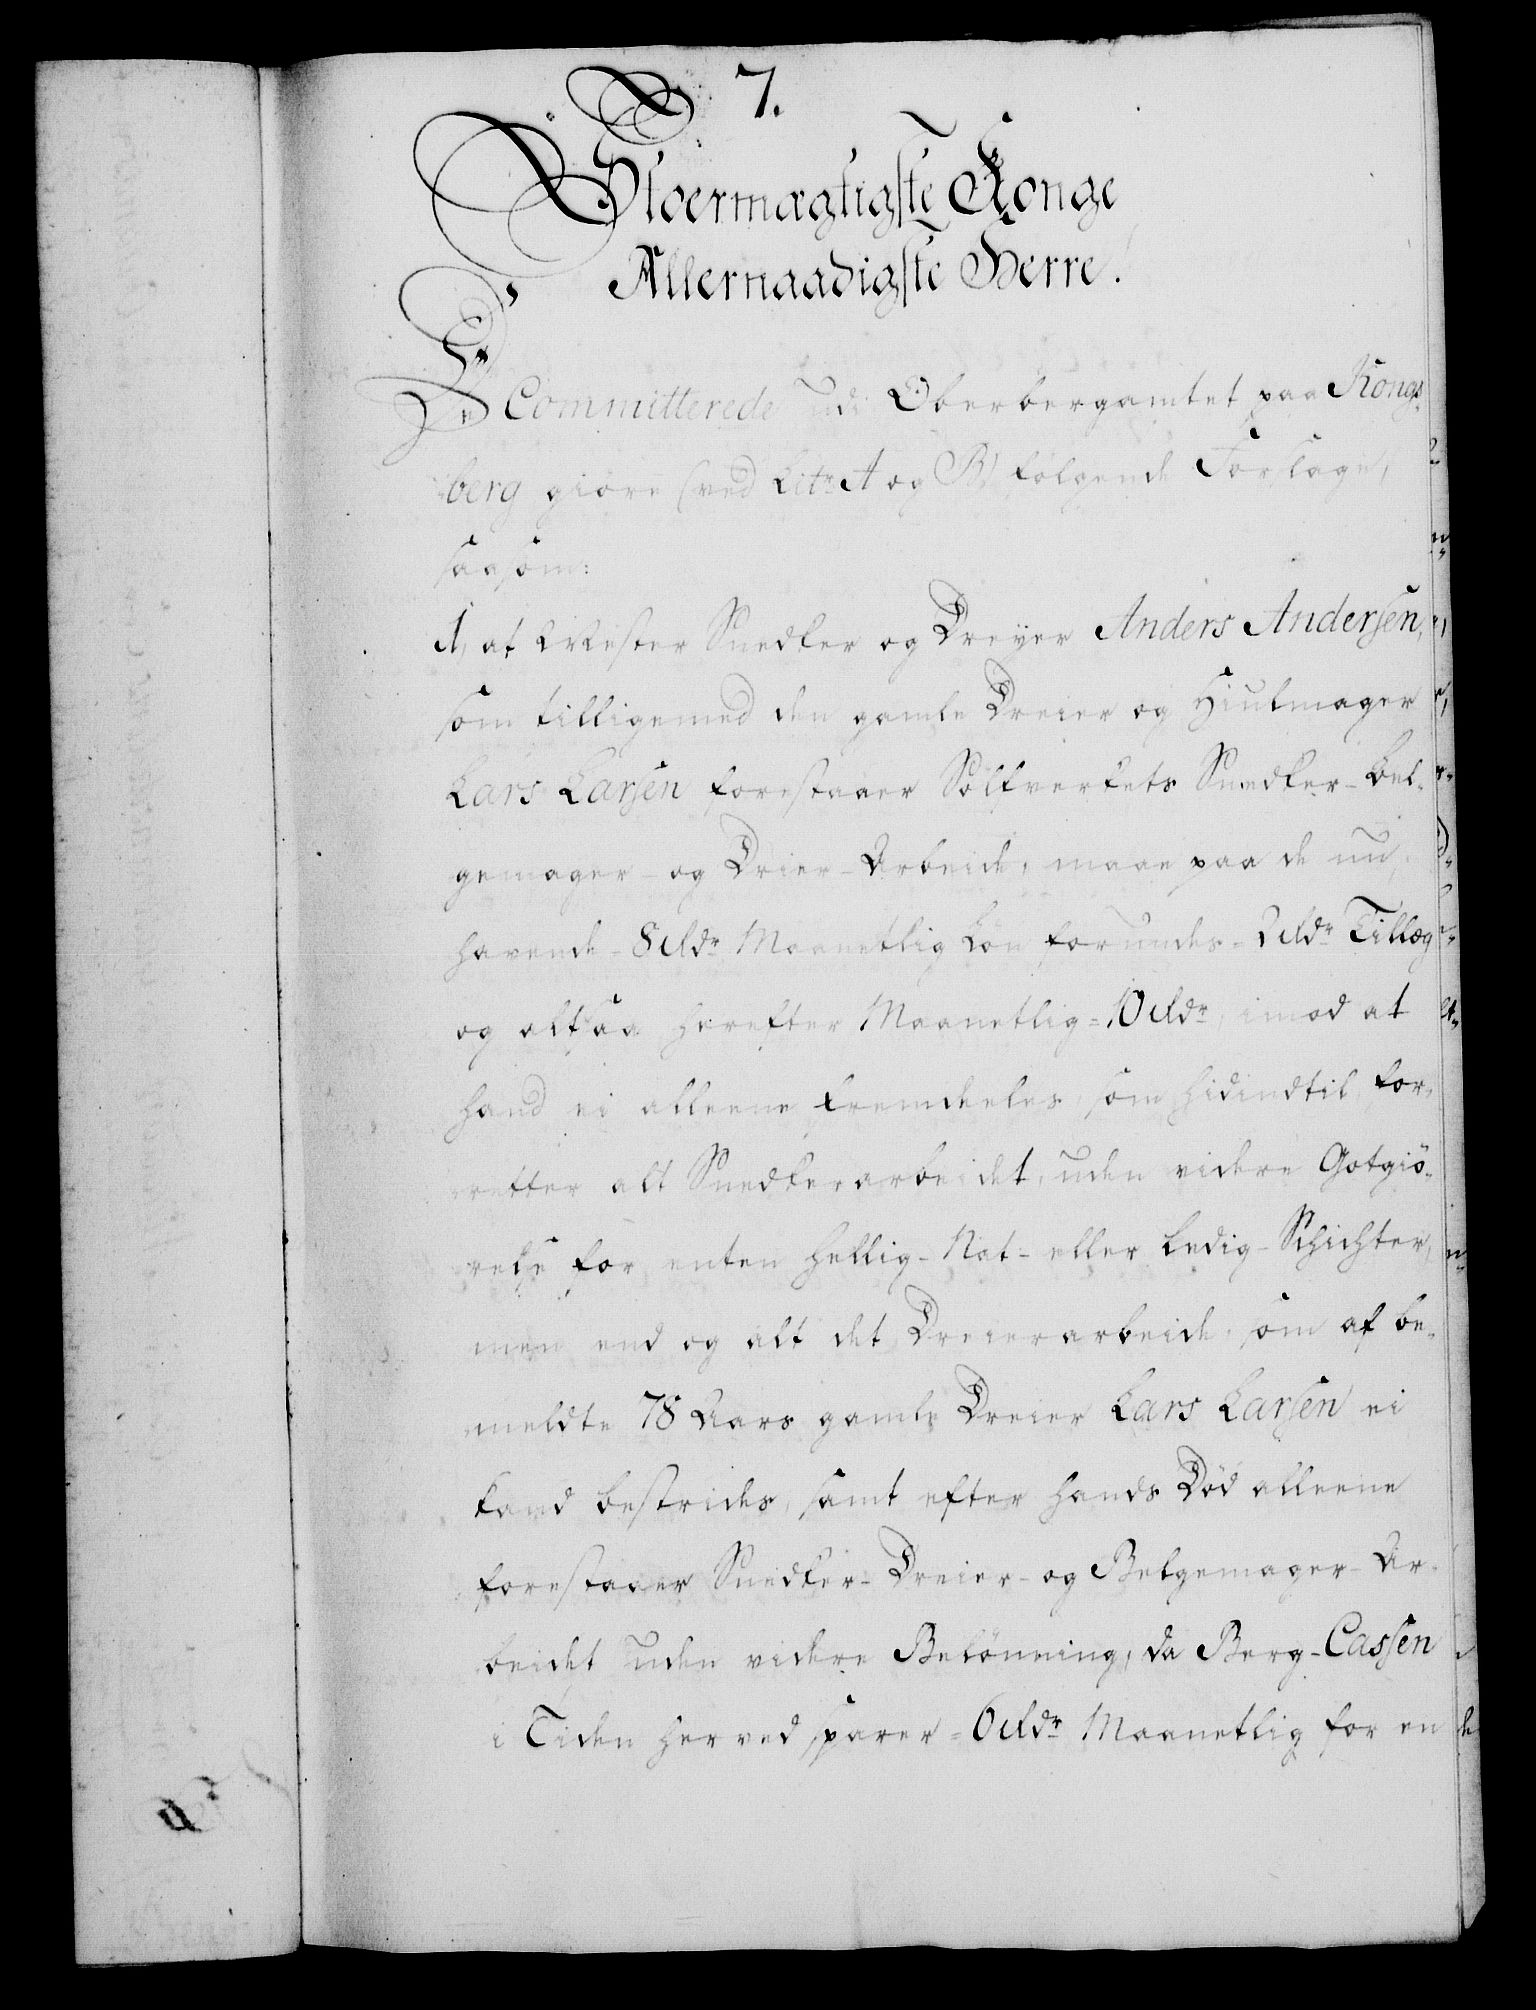 7.
Stoermægtigste Konge
Allernaadigste Herre.
De Committerede udi Oberbergamtet paa Kongs-
berg giøre (ved Litr A og B) følgende Forslage,
saasom:
1, at Mester Snedker og Dreyer Anders Andersen,
som tilligemed den gamle Dreier og Hiulmager
Lars Larsen forestaaer Sølfverkets Snedker- Bel-
gemager- og Dreier-Arbeide, maae paa de nu
havende 8 Rdr Maanetlig Løn forundes 2 Rdr Tillæg
og altsaa herefter Maanetlig = 10 Rdr, imod at
hand ei alleene fremdeeles, som hidindtil for-
retter alt Snedkerarbeidet, uden videre Gotgiö-
relse for enten Hellig- Nat- eller Ledig-Schichter,
men end og alt det Dreierarbeide, som af be-
meldte 78 Aars gamle Dreier Lars Larsen ei
kand bestrides, samt efter hands Død alleene
forestaaer Snedker- Dreier- og Belgemager-Ar-
beidet uden videre Belønning, da Berg-Cassen
i Tiden herved sparer = 6 Rdr Maanetlig for en